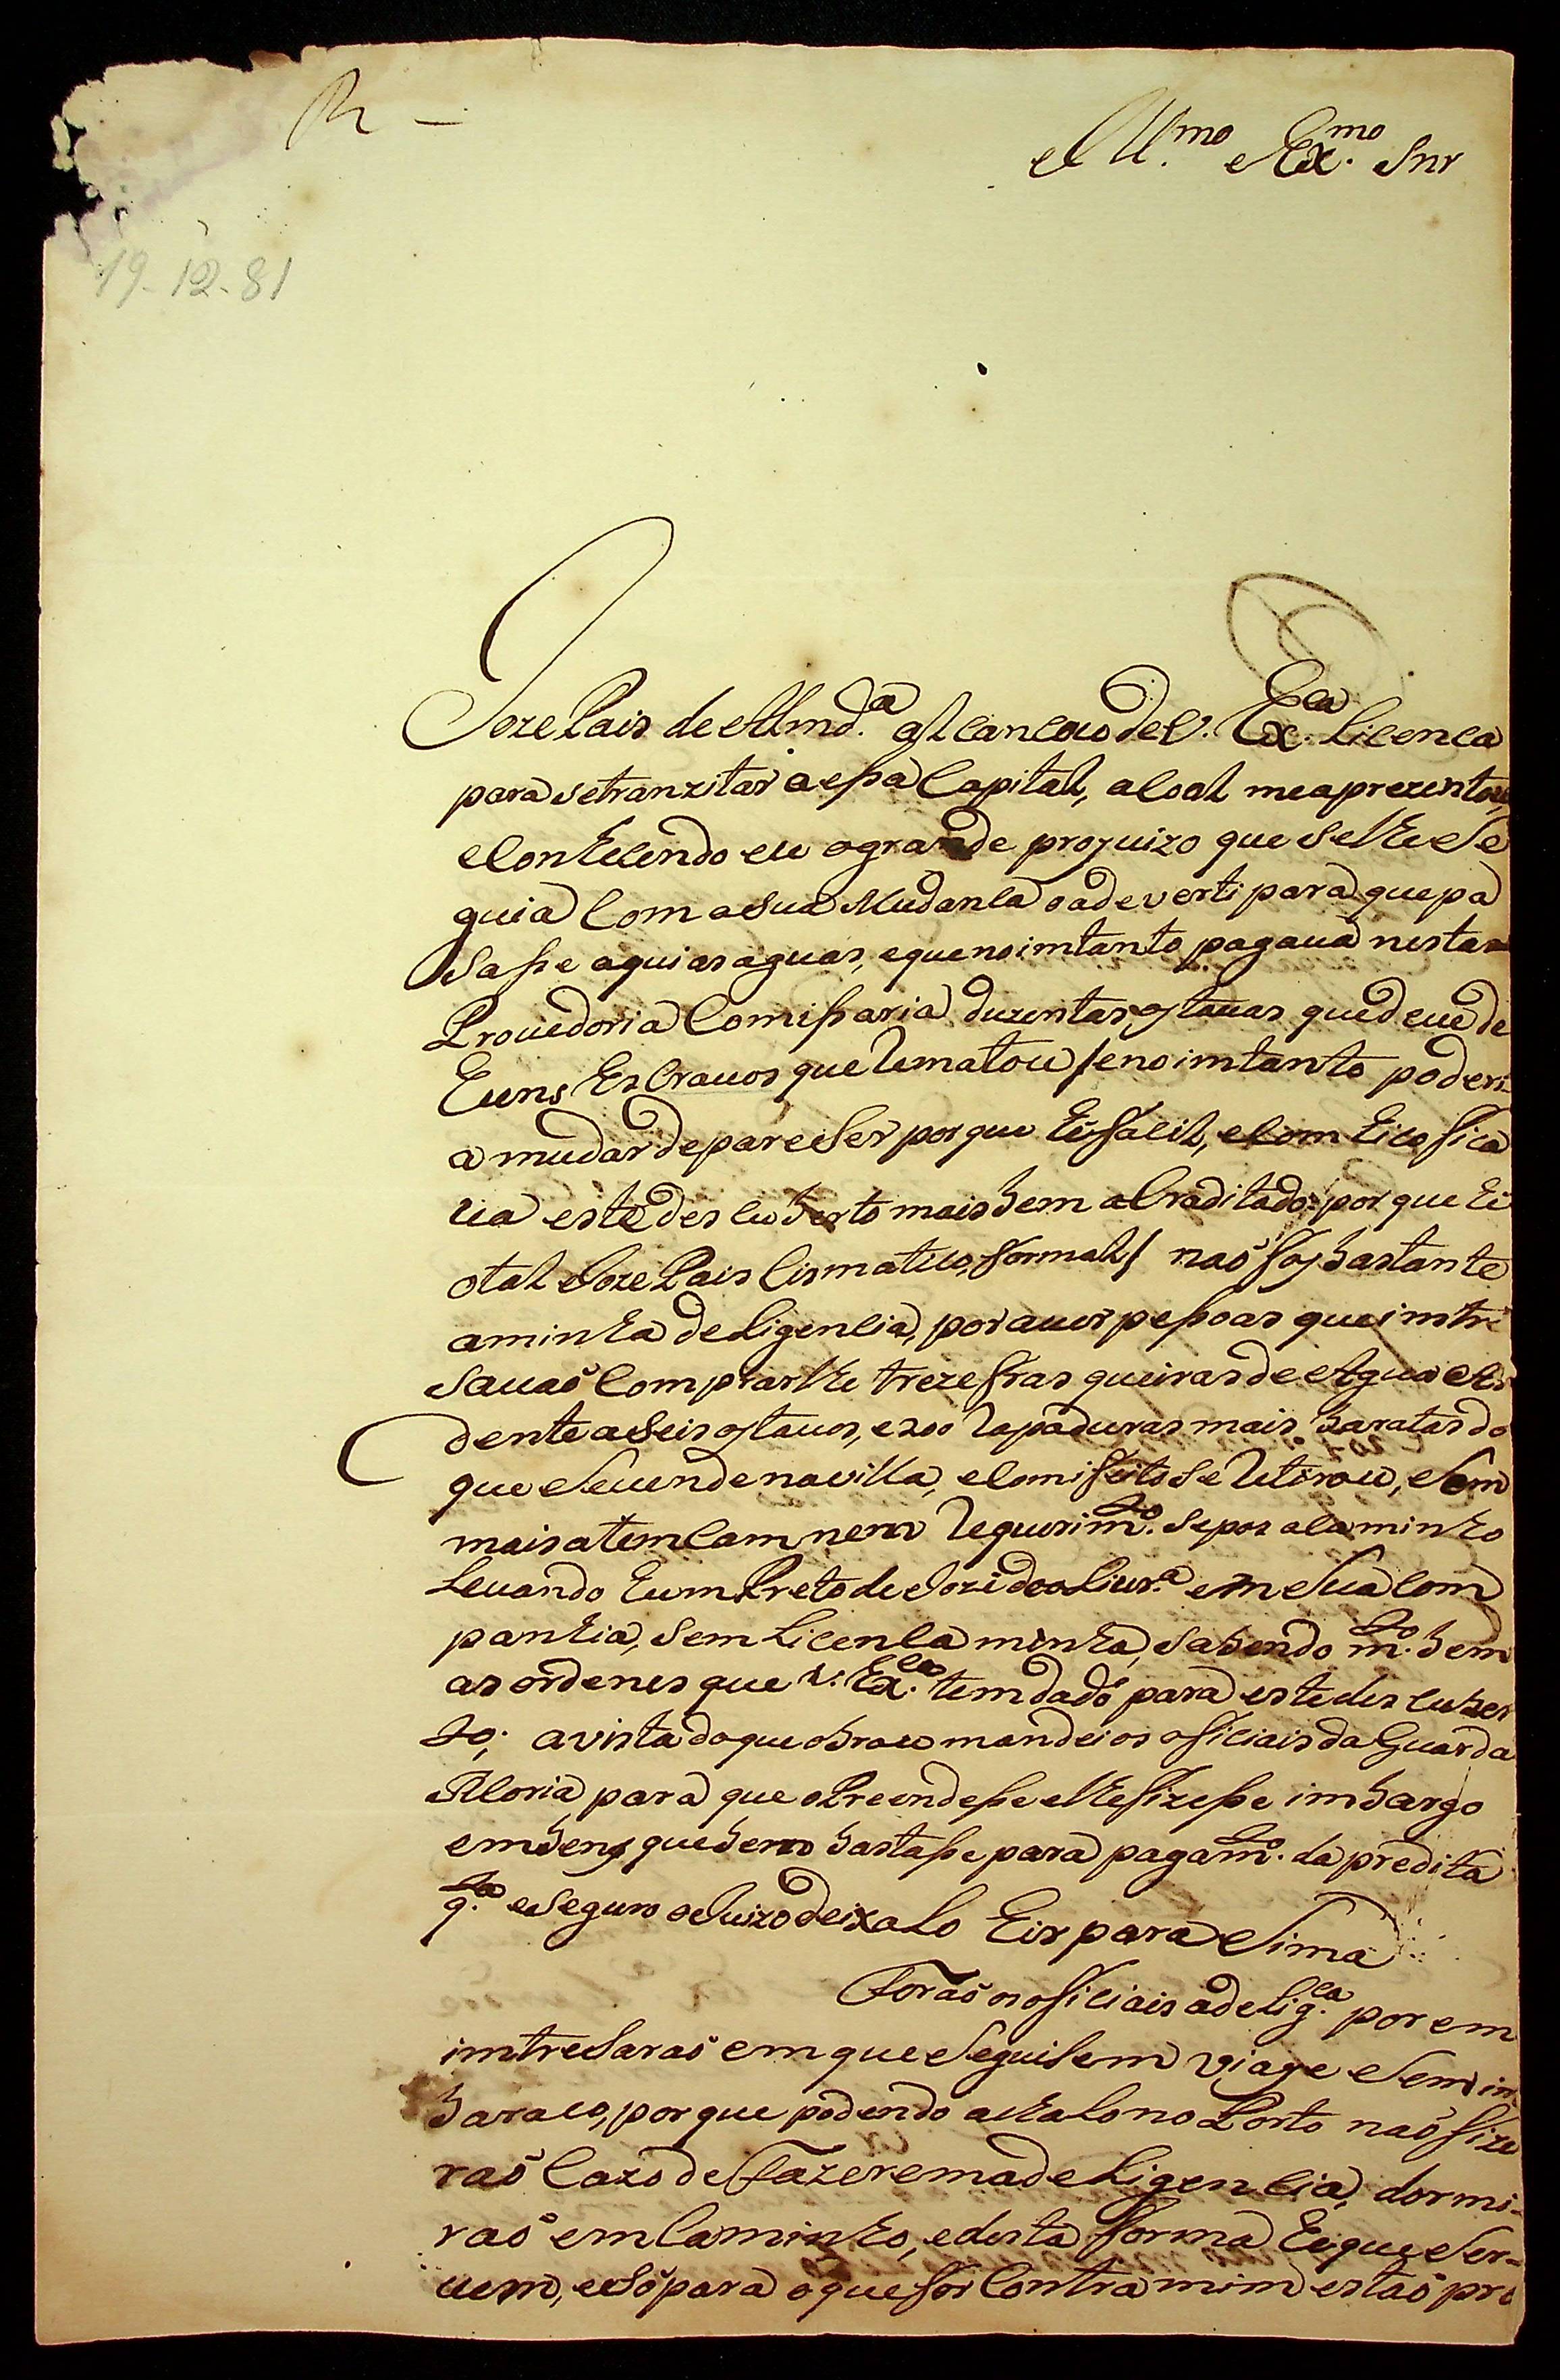 R –
Ill.mo e Ex.mo Snr
19-12-81
Joze Pais de Almd.a alcançou de V. Ex.ca licença
para se tranzitar a essa Capital, a coal me aprezentou,
e conhecendo eu o grande projuizo que se lhe se
guia com a sua mudança o adeverti para que pa
sasse aqui as aguas, e que no imtanto pagava nesta
Provedoria Comissaria duzentas 8tavas que deve de
huns Escravos que Rematou / e no imtanto poderi
a mudar de pareser por que hé facil, e com hico fica
ria este descuberto mais bem acraditado: por que hé
o tal Joze Pais cismatico formal / naõ foi bastante
a minha deligencia, por aver pessoas que imtre
savaõ comprarlhe treze frasqueiras de Agua Ar
dente a seis 8tavos, e 200 Rapaduras mais baratas do
que se vende na villa, e com isto se Retirou, sem
mais atemçam nem Requerim.to se pos a caminho
levando hum Preto de Joze de oLivr.a em sua com
panhia, sem Licença minha, sabendo m.to bem
as ordenes que V. Ex.ca tem dado para este descuber
to; a vista do que obrou mandei os oficiais da Guarda
Moria para que o Preendesse e lhe fizesse imbargo
em bens que bem bastasse para pagam.to da predita
q.ta e seguro o Juizo deixalo hir para Sima
Foraõ os oficiais a delig.ca porem
imtresaraõ em que seguisem viage sem im
baraco, por que podendo achalo no Porto naõ fize
raõ cazo de Fazerem a deligencia, dormi-
raõ em caminho, e desta forma hé que ser-
vem, e só para o que for contra mim estaõ pro